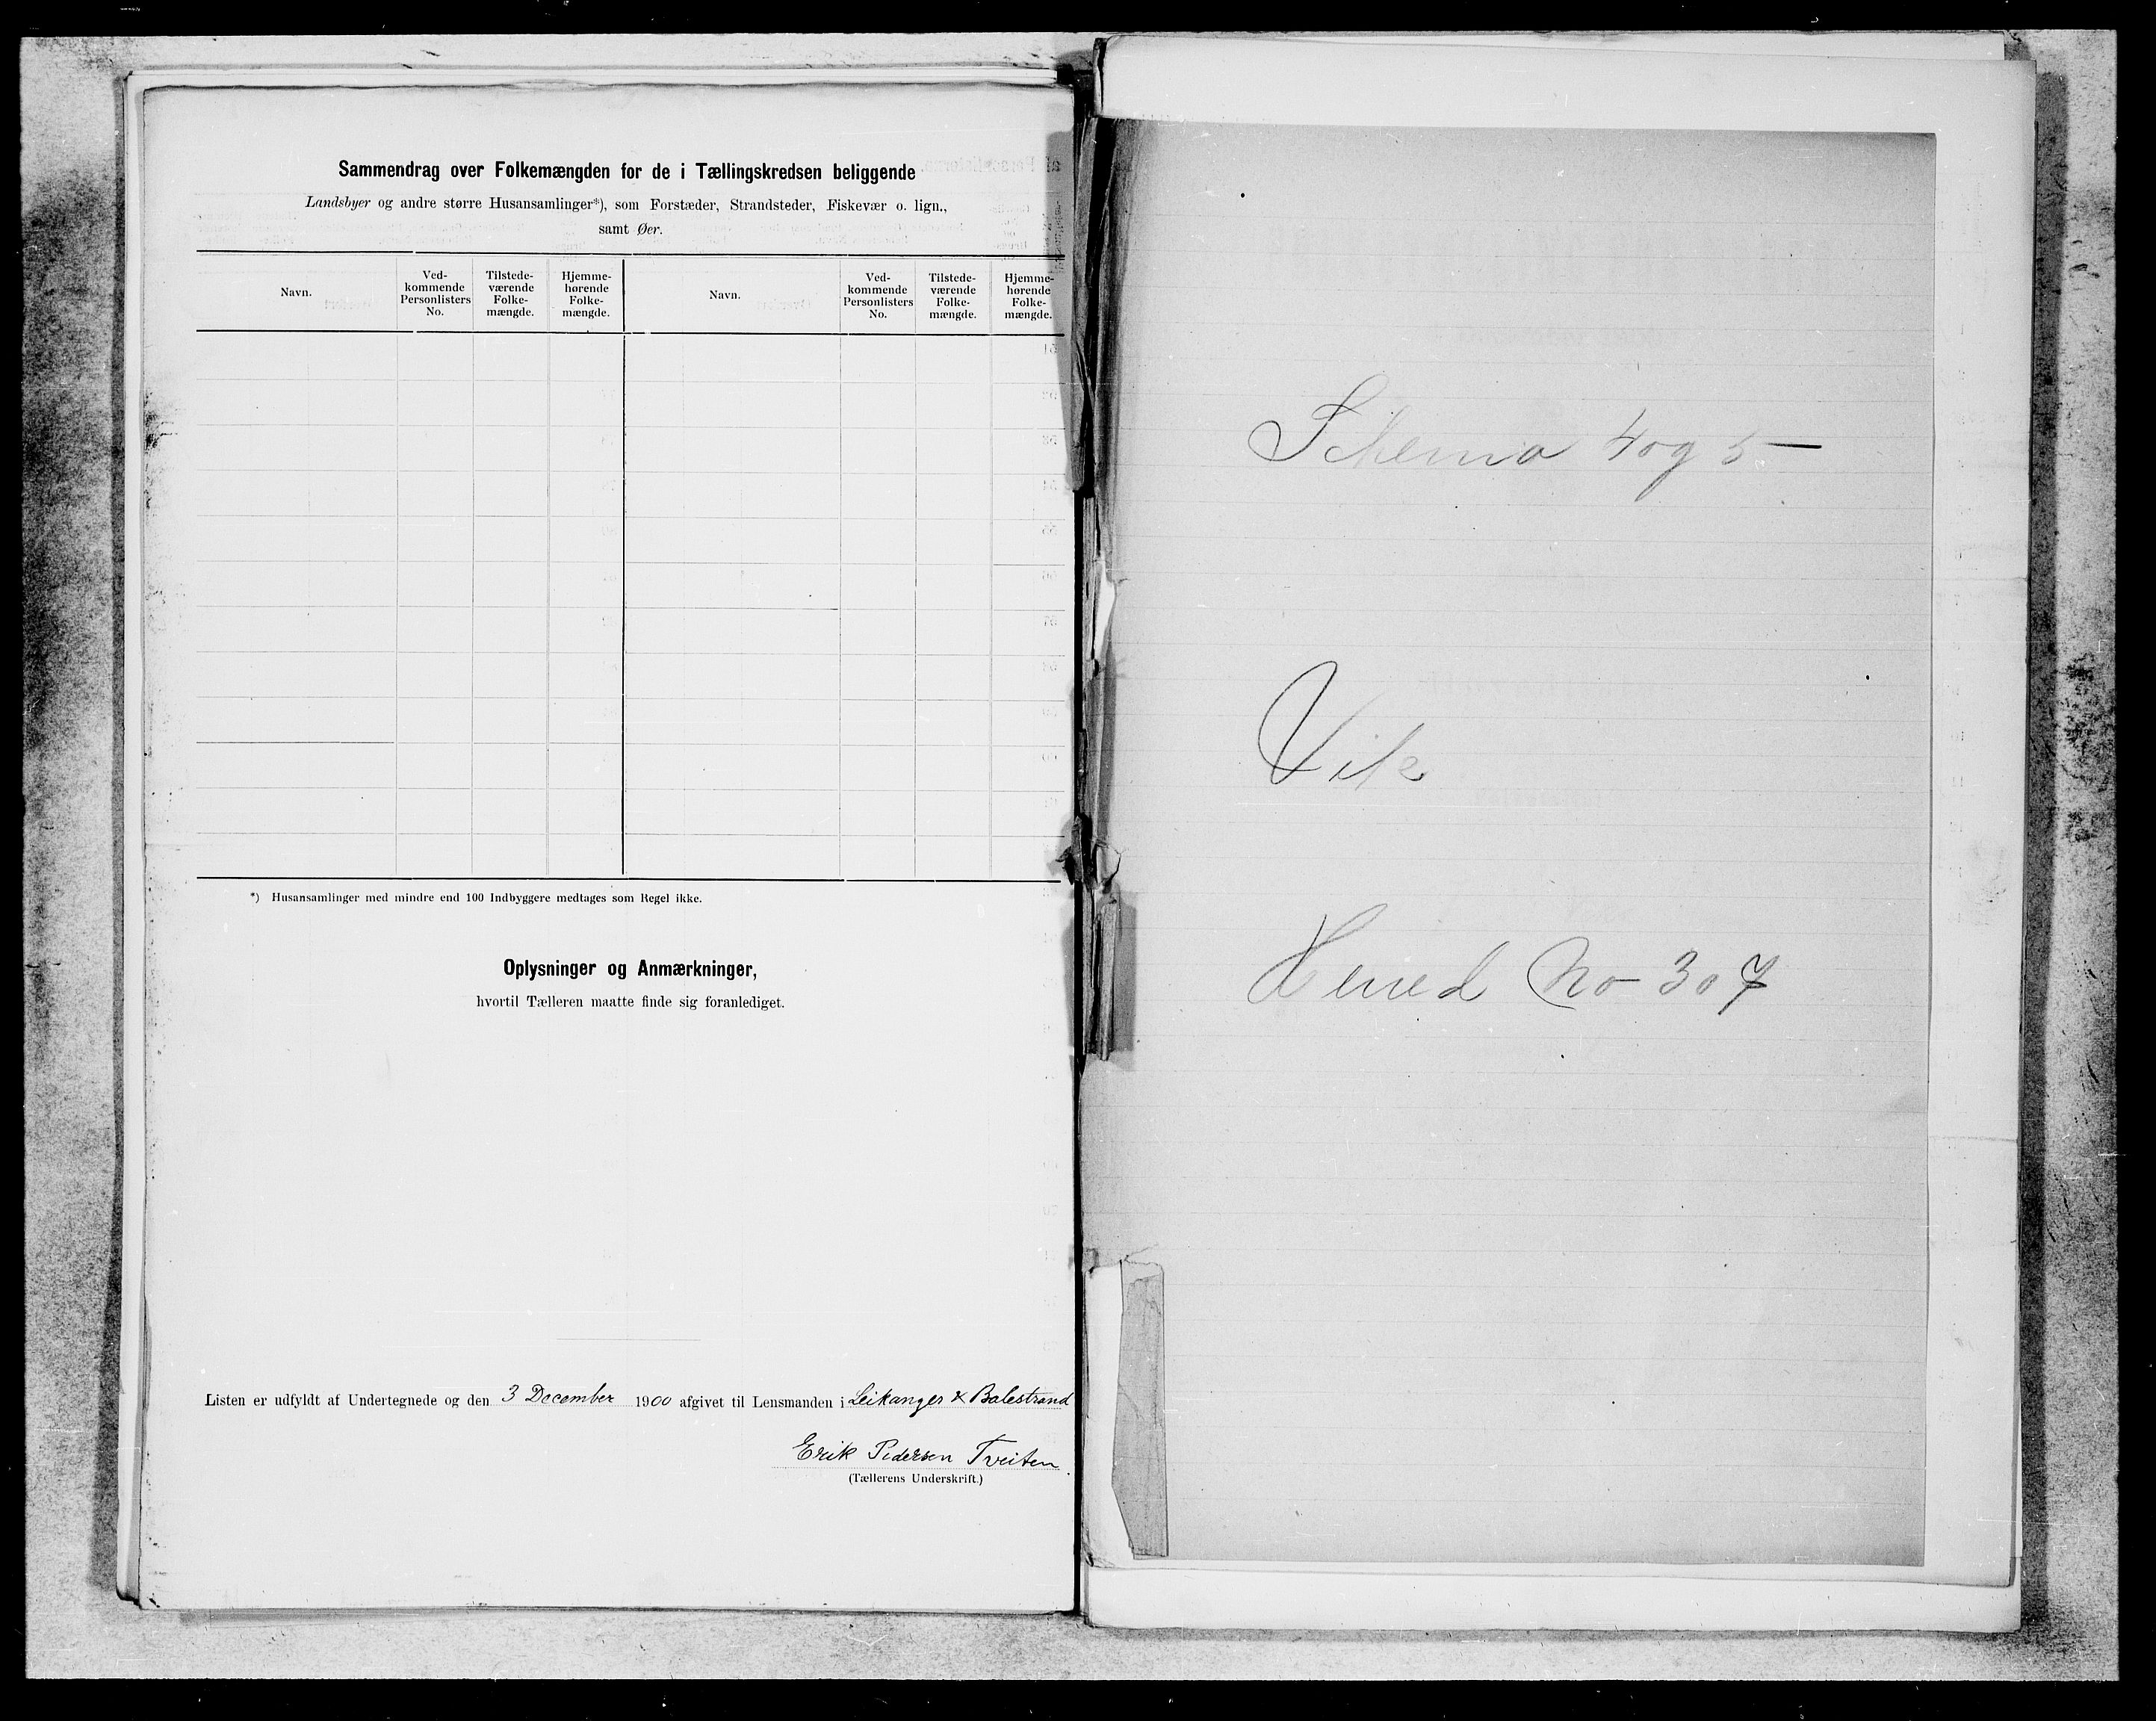 Sammendrag over Folkemængden for de i Tællingskredsen beliggende
Landsbyer og andre større Husansamlinger*), som Forstæder, Strandsteder, Fiskevær o. lign.,
samt Øer.
Navn.
Ved-
kommende
Personlisters
No.
Tilstede-
værende
Folke-
mængde.
Hjemme-
hørende
Folke-
mængde.
Navn.
Ved-
kommende
Personlisters
No.
Tilstede-
værende
Folke-
mængde.
Hjemme-
hørende
Folke-
mængde.
*) Husansamlinger med mindre end 100 Indbyggere medtages som Regel ikke.
Oplysninger og Anmærkninger,
hvortil Tælleren maatte finde sig foranlediget.
Listen er udfyldt af Undertegnede og den 3 December 1900 afgivet til Lensmanden i Leikanger & Balestrand
Erik Pedersen Tveiten
(Tællerens Underskrift.)
Schema 4 og 5
Vik
Herred No 307